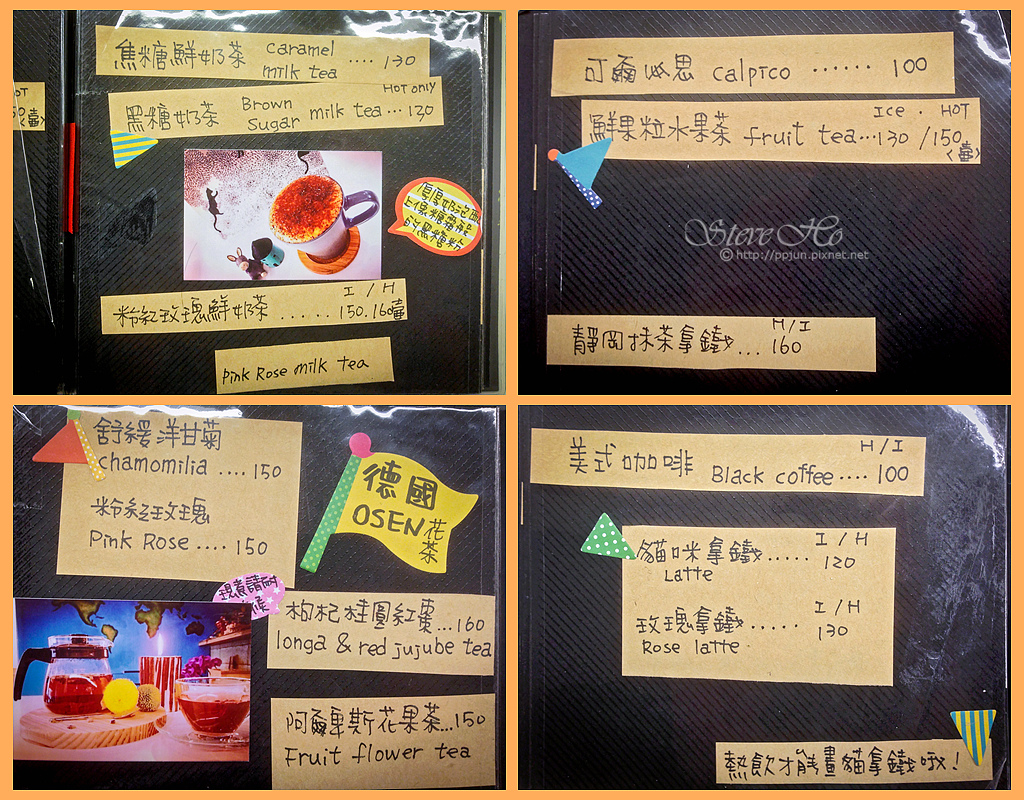 焦糖鮮奶茶 caramel milk tea .... 130
HOT only
黑糖奶茶 Brown Sugar milk tea... 130
厚厚奶泡配
上像糖霜般
的黑糖粉
I / H
粉紅玫瑰鮮奶茶 ..... 150.160壺
Pink Rose milk tea
可爾必思 calpico ...... 100
Ice . HOT
鮮果粒水果茶 fruit tea...130 /150
<壺>
Steve Ho
© http://ppjun.pixnet.net
H/I
靜岡抹茶拿鐵... 160
舒緩洋甘菊
chamomilia .... 150
粉紅玫瑰
Pink Rose .... 150
德國
OSEN花茶
現煮請耐
候
枸杞桂圓紅棗...160
longa & red jujube tea
阿爾卑斯花果茶...150
Fruit flower tea
H/I
美式咖啡 Black coffee.... 100
I / H
貓咪拿鐵..... 120
Latte
I / H
玫瑰拿鐵..... 130
Rose latte
熱飲才能畫貓拿鐵哦!